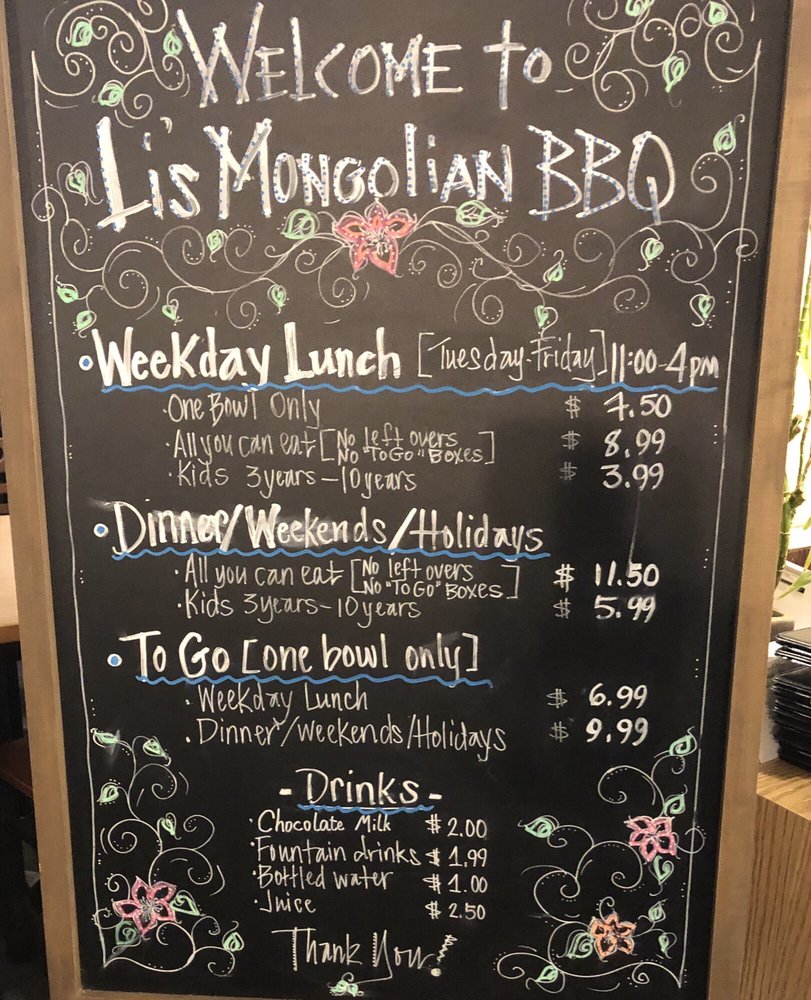 Welcome to
Li's Mongolian BBQ
• Weekday Lunch [Tuesday-Friday] 11:00-4pm
· One Bowl Only $ 7.50
· All you can eat [No left overs No "To Go" Boxes] $ 8.99
· Kids 3years-10years $ 3.99
• Dinner/Weekends/Holidays
· All you can eat [No left overs No "To Go" Boxes] $ 11.50
· Kids 3years-10years $ 5.99
• To Go [one bowl only]
· Weekday Lunch $ 6.99
· Dinner/Weekends/Holidays $ 9.99
- Drinks -
· Chocolate Milk $ 2.00
· Fountain drinks $ 1.99
· Bottled water $ 1.00
· Juice $ 2.50
Thank You!